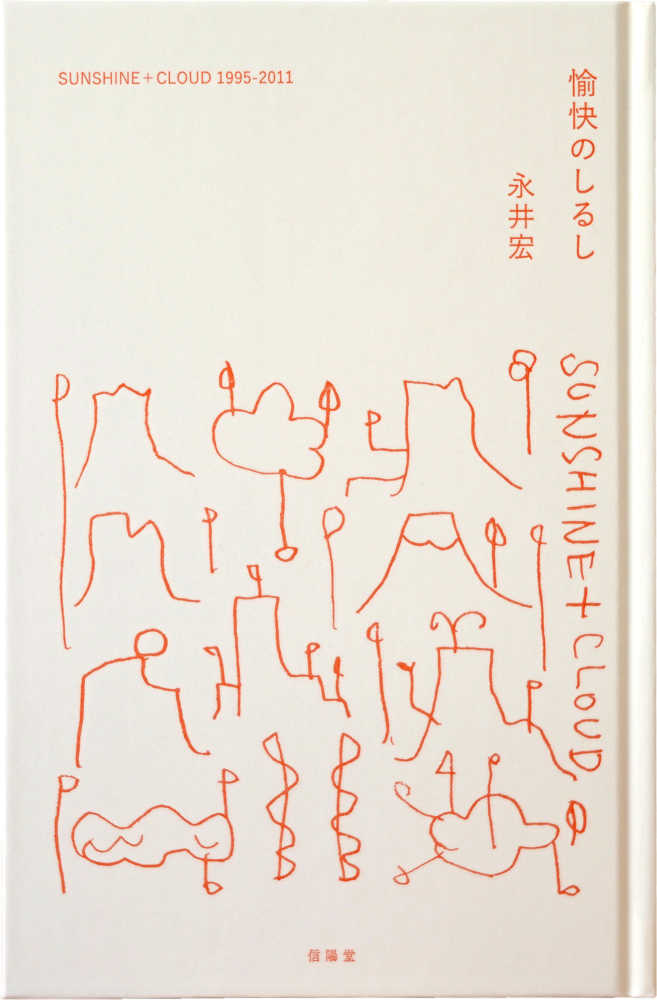 SUNSHINE+CLOUD 1995-2011
愉快のしるし
永井宏
SUNSHINE+CLOUD
信陽堂